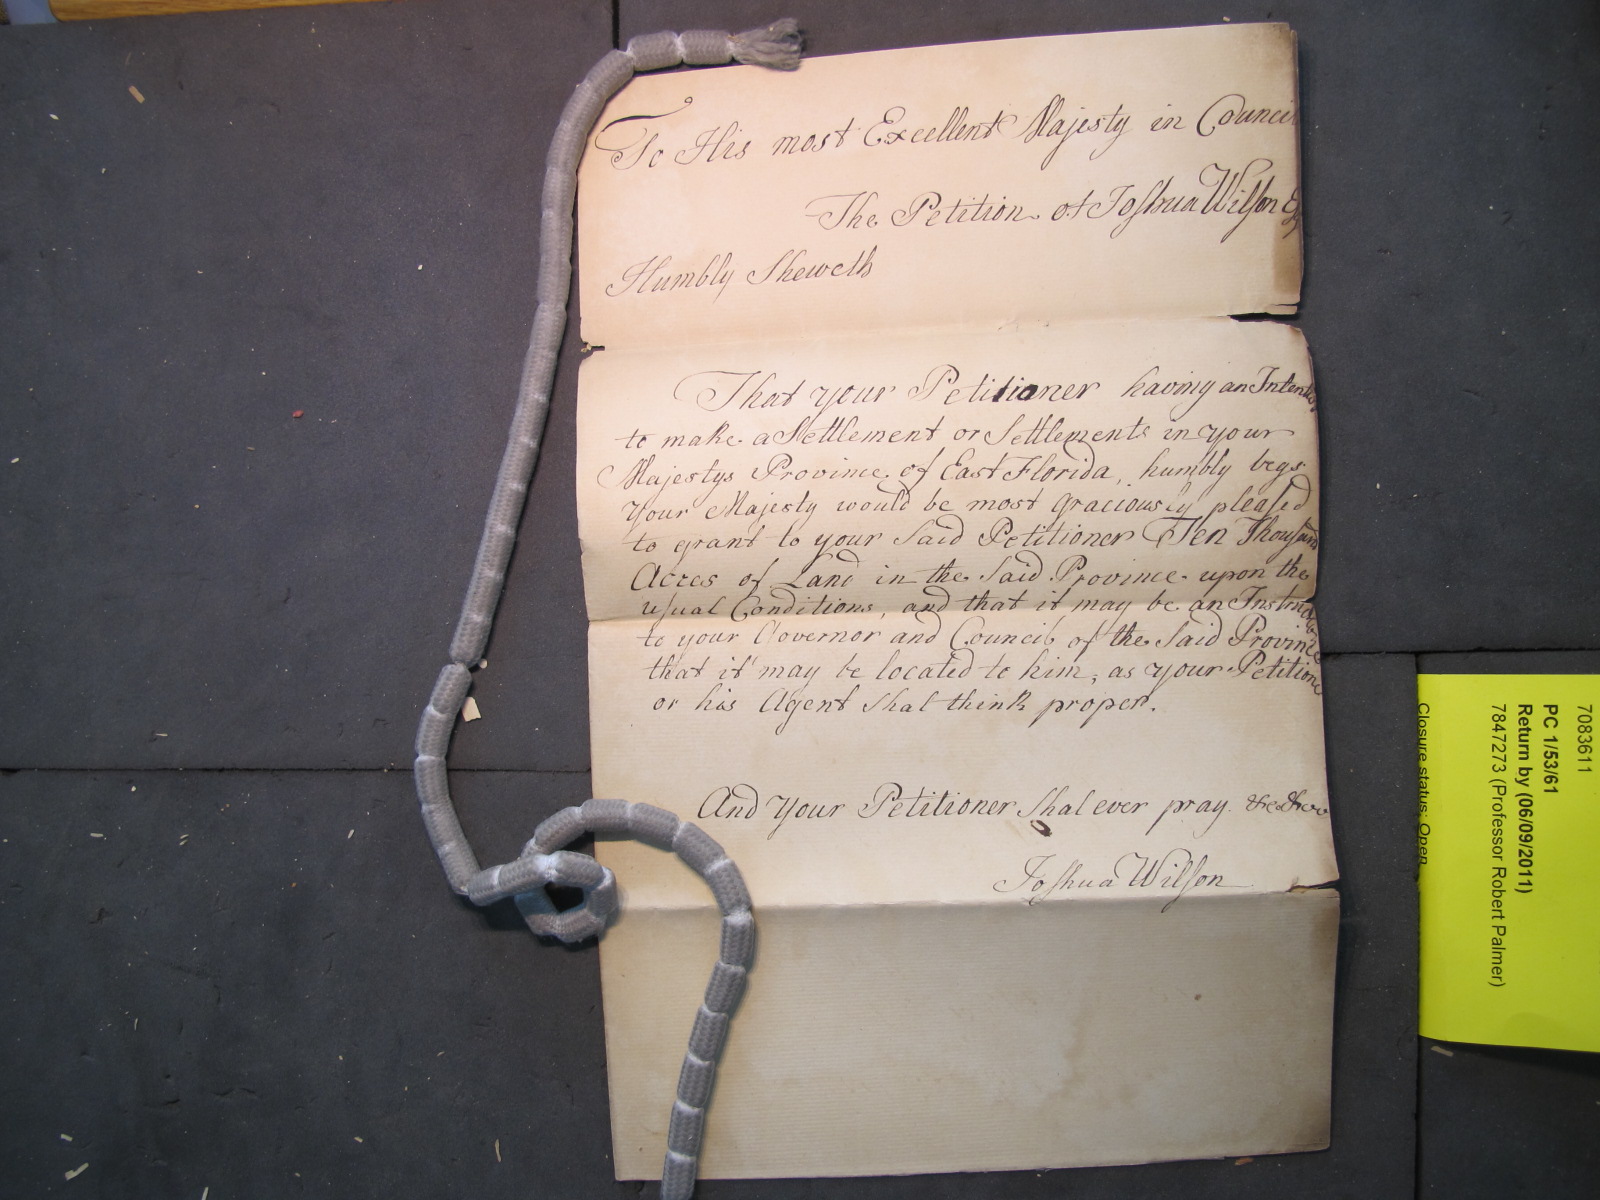 To His most Excellent Majesty in Council
The Petition of Joshua Wilson Esq
Humbly Sheweth
That your Petitioner having an Intent
to make a Settlement or Settlements in your
Majestys Province of East Florida, humbly begs
your Majesty would be most graciously pleased
to grant to your Said Petitioner Ten Thousand
Acres of Land in the Said Province upon the
usual Conditions, and that it may be an Instruct
to your Governor and Council of the Said Province
that it may be located to him, as your Petitione
or his Agent Shal think proper.
And your Petitioner Shal ever pray &c
Joshua Wilson
7083611
PC 1/53/61
Return by (06/09/2011)
7847273 (Professor Robert Palmer)
Closure status: Open